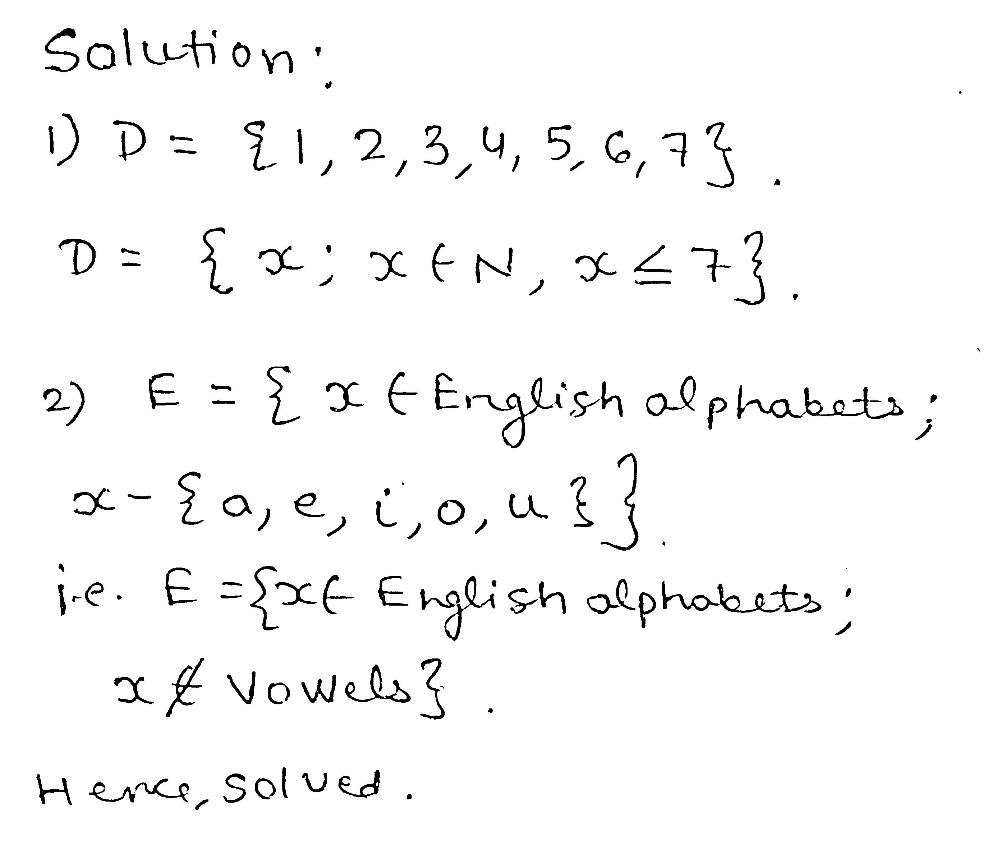 Solution:
1) D = {1, 2, 3, 4, 5, 6, 7}.
D = {x; x ∈ N, x ≤ 7}.
2) E = {x ∈ English alphabets;
x - {a, e, i, o, u}}.
i.e. E = {x ∈ English alphabets;
x ∉ Vowels}.
Hence, solved.